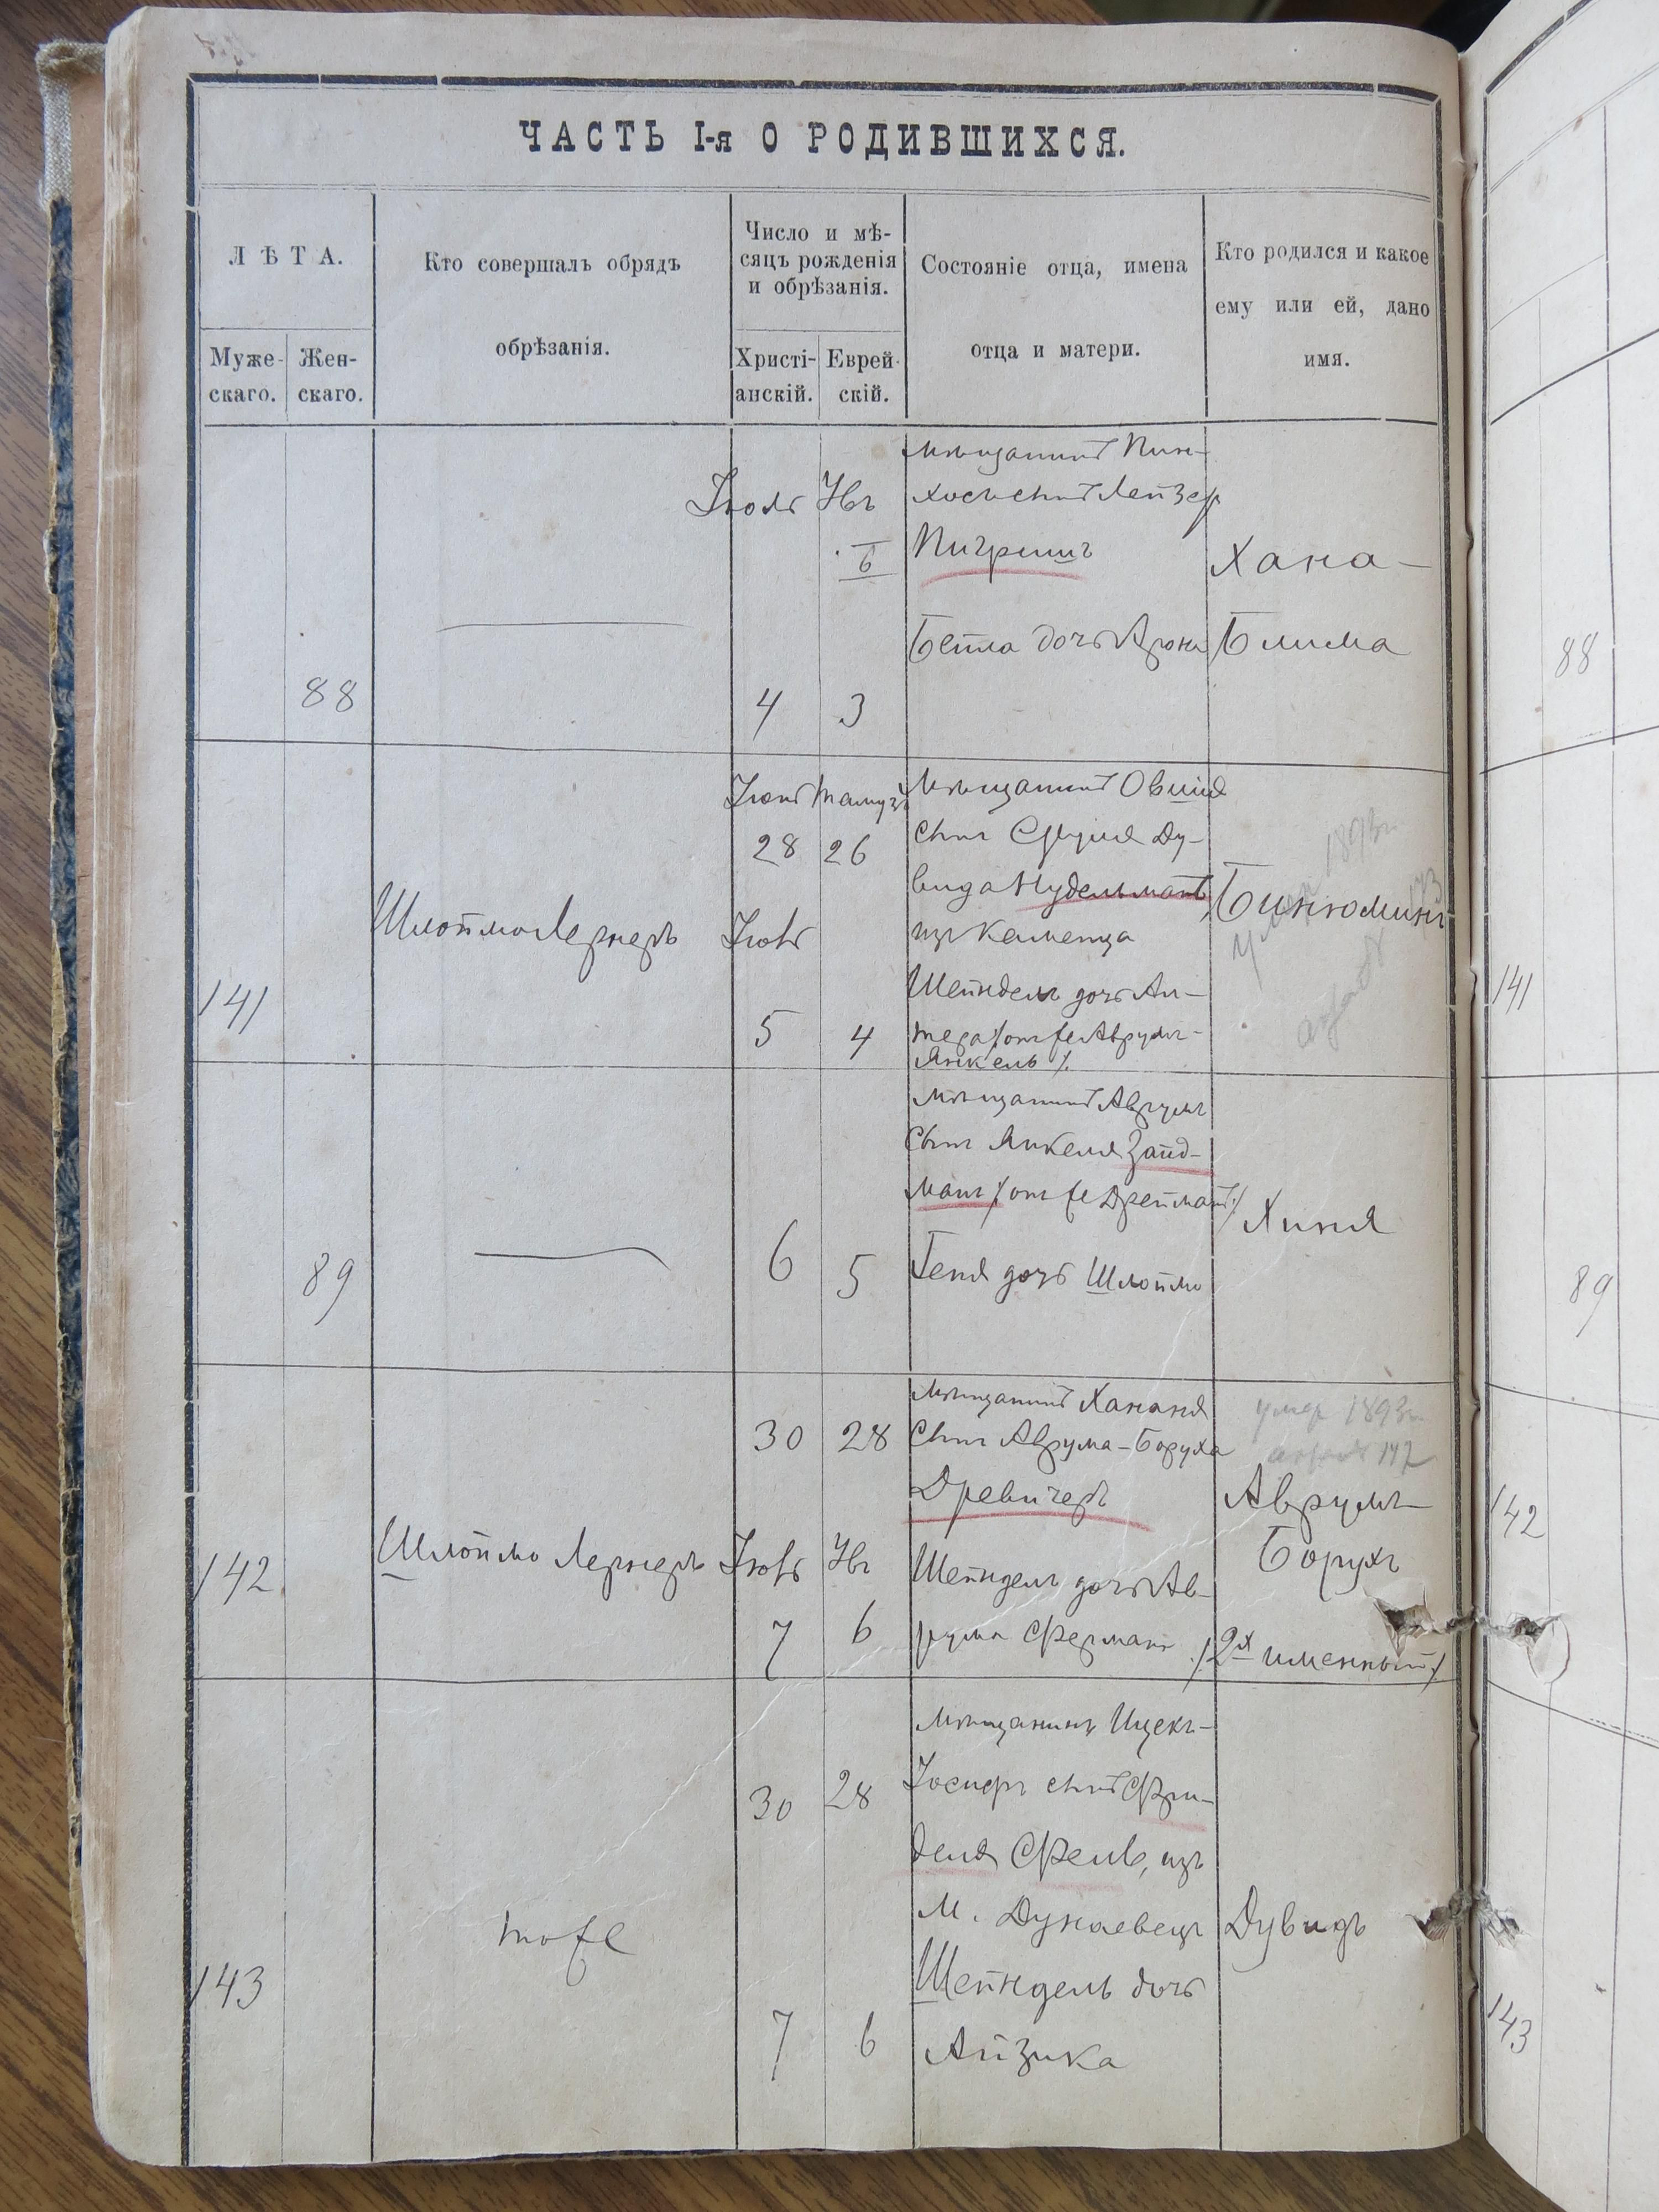 ЧАСТЬ I-я О РОДИВШИХСЯ.
ЛѢТА.
Муже-
скаго.
Жен-
скаго.
Кто совершалъ обрядъ
обрѣзанія.
Число и мѣ-
сяцъ рожденія
и обрѣзанія.
Христі-
анскій.
Еврей-
скій.
Состояніе отца, имена
отца и матери.
Кто родился и какое
ему или ей, дано
имя.
88
Іюль
4
Овъ
3
мѣщанинъ Пин-
хосъ сынъ Лейзер
Бейла дочь Арона
Хана-
Блима
88
141
Шлоймо Лернеръ
Іюнь
28
Іюль
5
Тамузъ
26
4
Мѣщанинъ Овшія
сынъ Сруля Ду-
вида Нудельманъ,
изъ Каменца
Шейндель дочь Ал-
тера /онъ же Аврумъ-
Янкель/.
Биньюминъ
умер 1893г
141
89
6
5
мѣщанинъ Аврумъ
сынъ Янкеля Зайд-
манъ /онъ же Дрейманъ/
Геня дочь Шлоймо
Хиня
89
142
Шлоймо Лернеръ
30
Іюль
7
28
6
мѣщанинъ Хананя
сынъ Аврума-Боруха
Древичеръ
Шейндель дочь Ав-
рума Ферманъ
умер 1893г
Аврумъ-
Борухъ
/2х именный/
142
143
тоже
30
7
28
6
мѣщанинъ Ицекъ-
Іосифъ сынъ Фри-
деля Фель, изъ
м. Дунаевецъ
Шейндель дочь
Айзика
Дувидъ
143